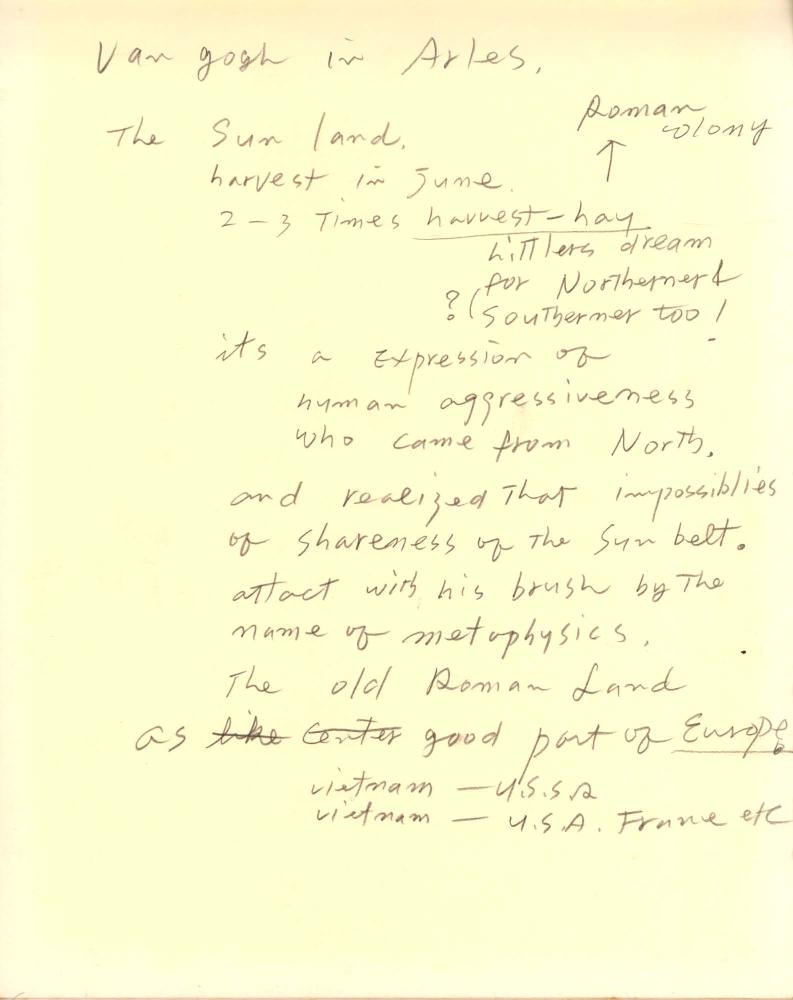 Van gogh in Arles,
Roman
colony
↑
The Sun land.
harvest in June.
2-3 Times harvest-hay
hittlers dream
for Northerner &
?(Southerner too!
its a Expression of
human aggressiveness
who came from North,
and realized That impossiblies
of shareness of The Sun belt.
attact with his brush by The
name of metophysics.
The old Roman Land
as like Center good part of Europe
vietnam — U.S.S.R
vietnam — U.S.A. France etc